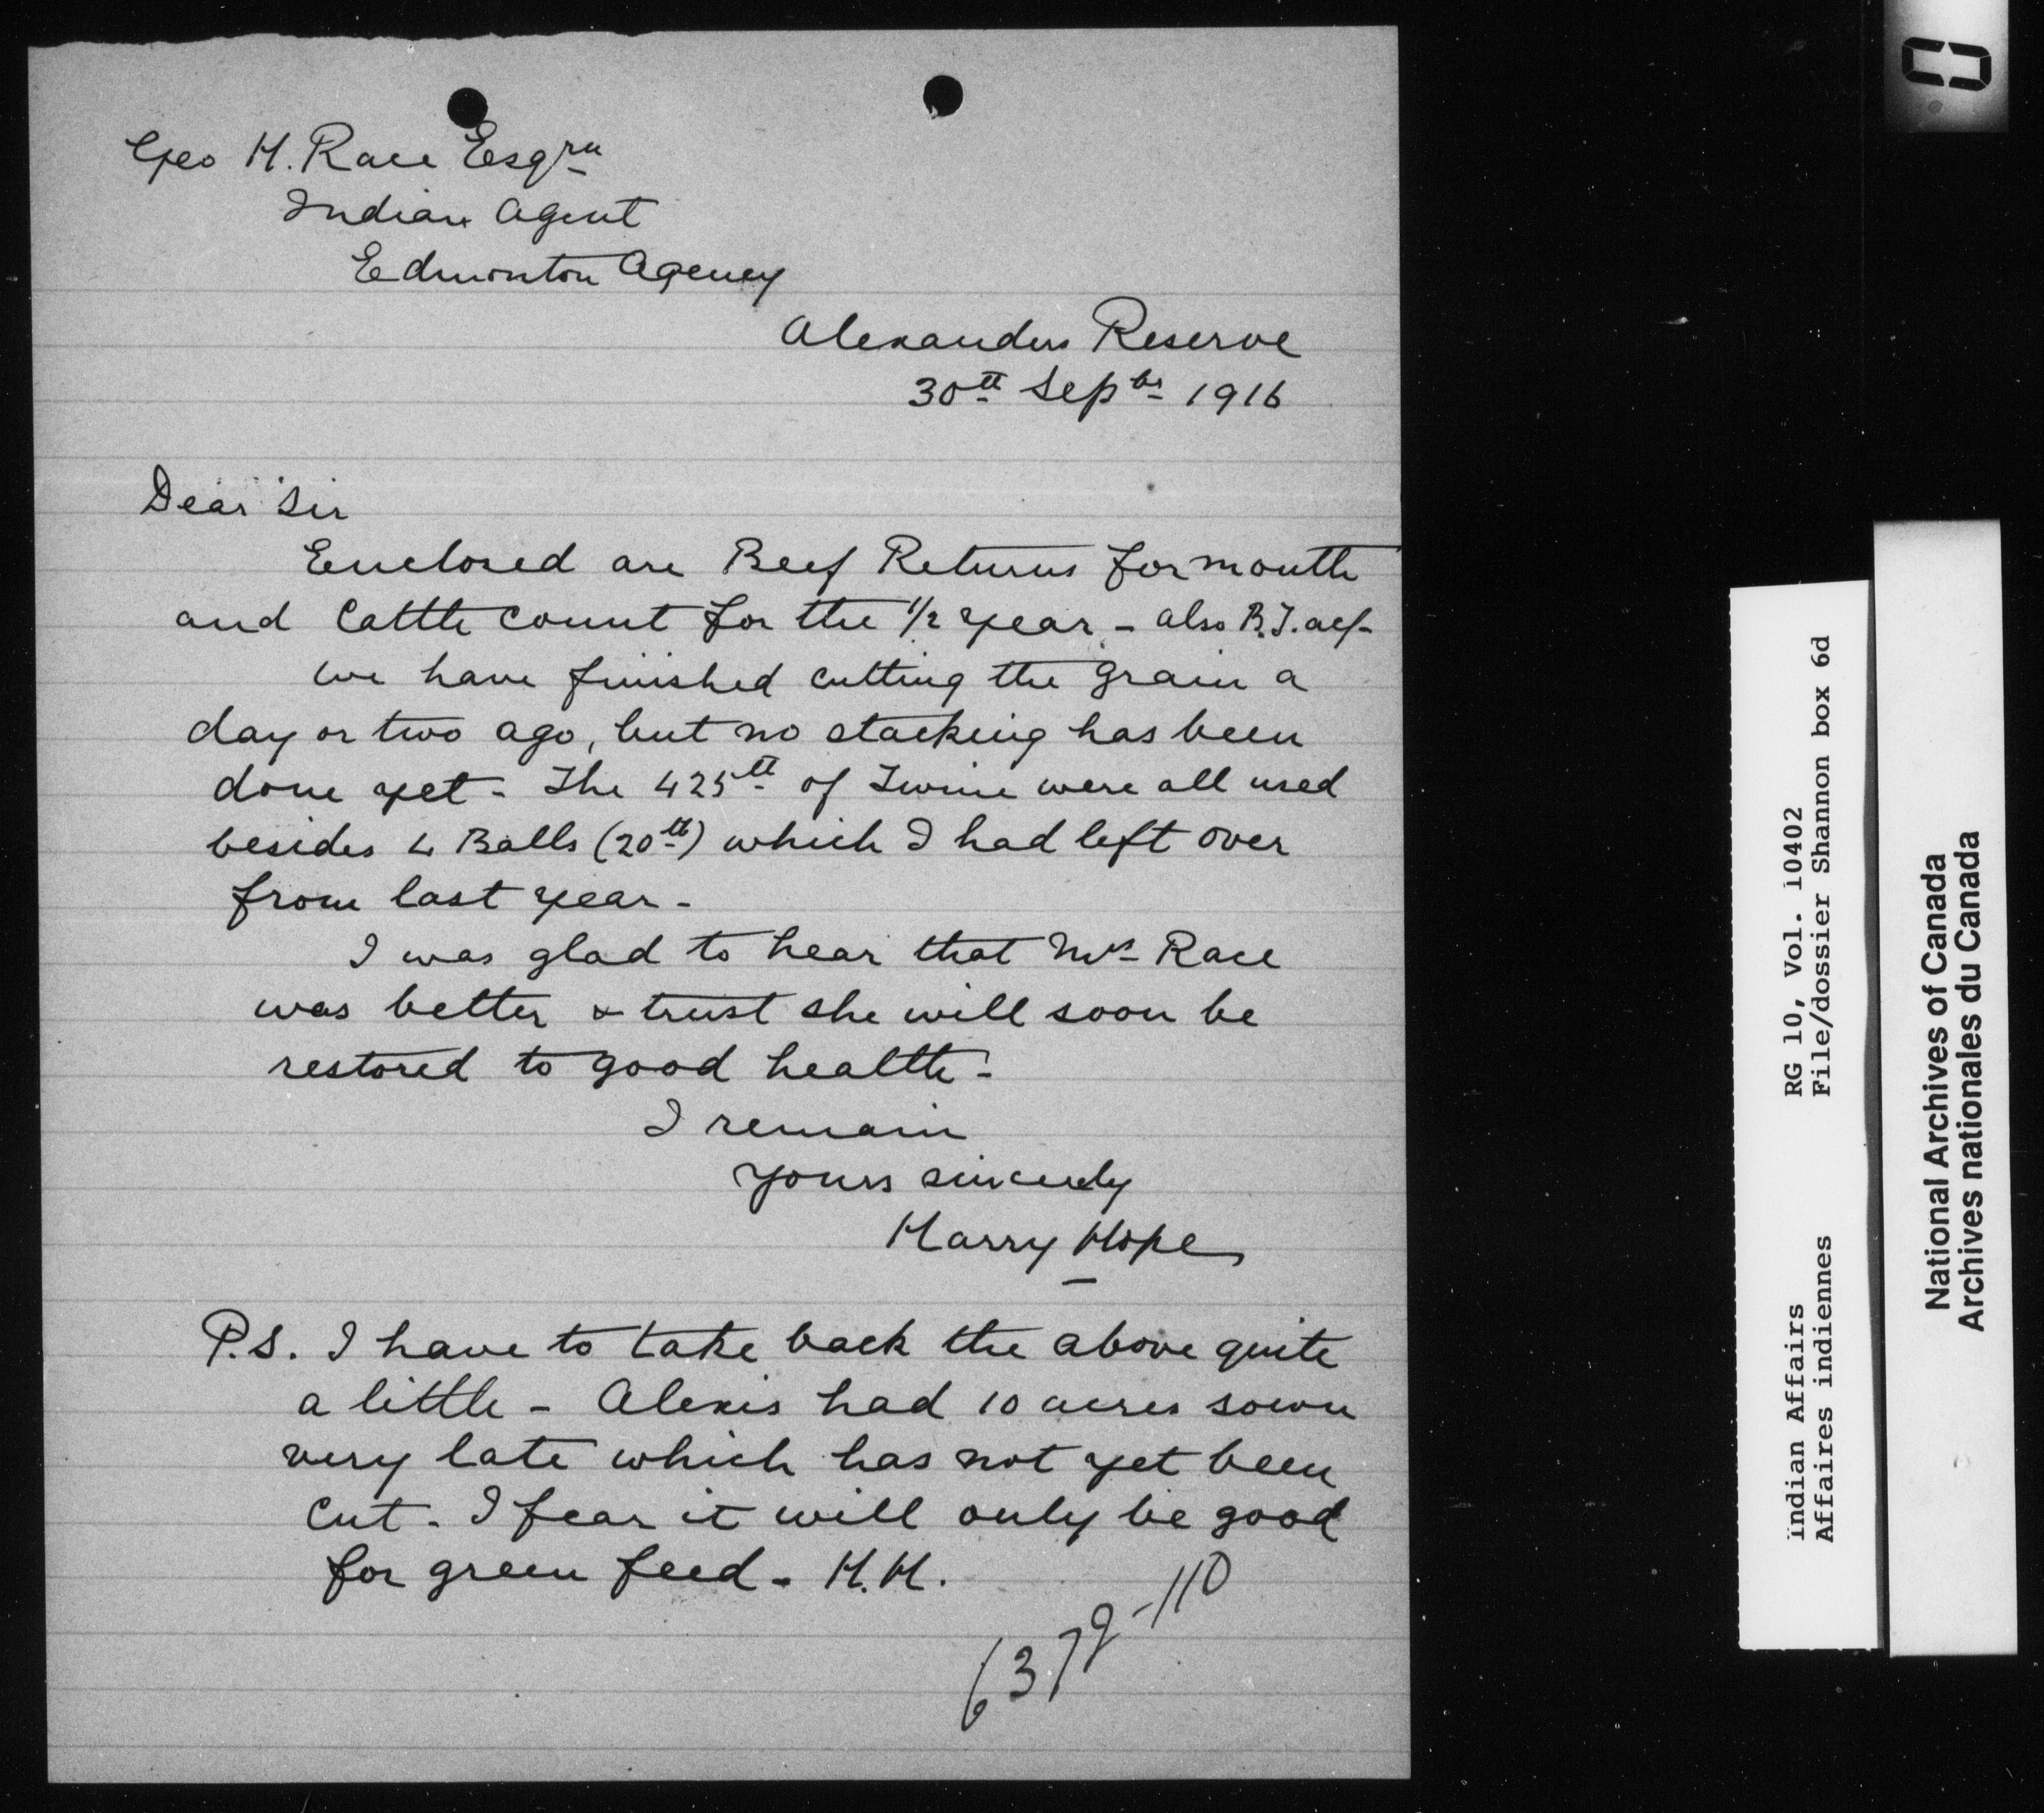 Geo H. Race Esqre
Indian Agent
Edmonton Agency
Alexanders Reserve
30th Sepbr 1916
Dear Sir
Enclosed are Beef Returns for month
and Cattle count for the 1/2 year - also B.F.
we have finished cutting the grain a
day or two ago, but no stacking has been
done yet - The 425 lb of Twine were all used
besides 4 Balls (20 lb) which I had left over
from last year -
I was glad to hear that Mrs Race
was better & trust she will soon be
restored to good health -
I remain
yours sincerely
Harry Hope
P.S. I have to take back the above quite
a little - Alexis had 10 acres sown
very late which has not yet been
cut - I fear it will only be good
for green feed - H.H.
6379-110
Indian Affairs RG 10, Vol. 10402
Affaires indiennes File/dossier Shannon box 6d
National Archives of Canada
Archives nationales du Canada